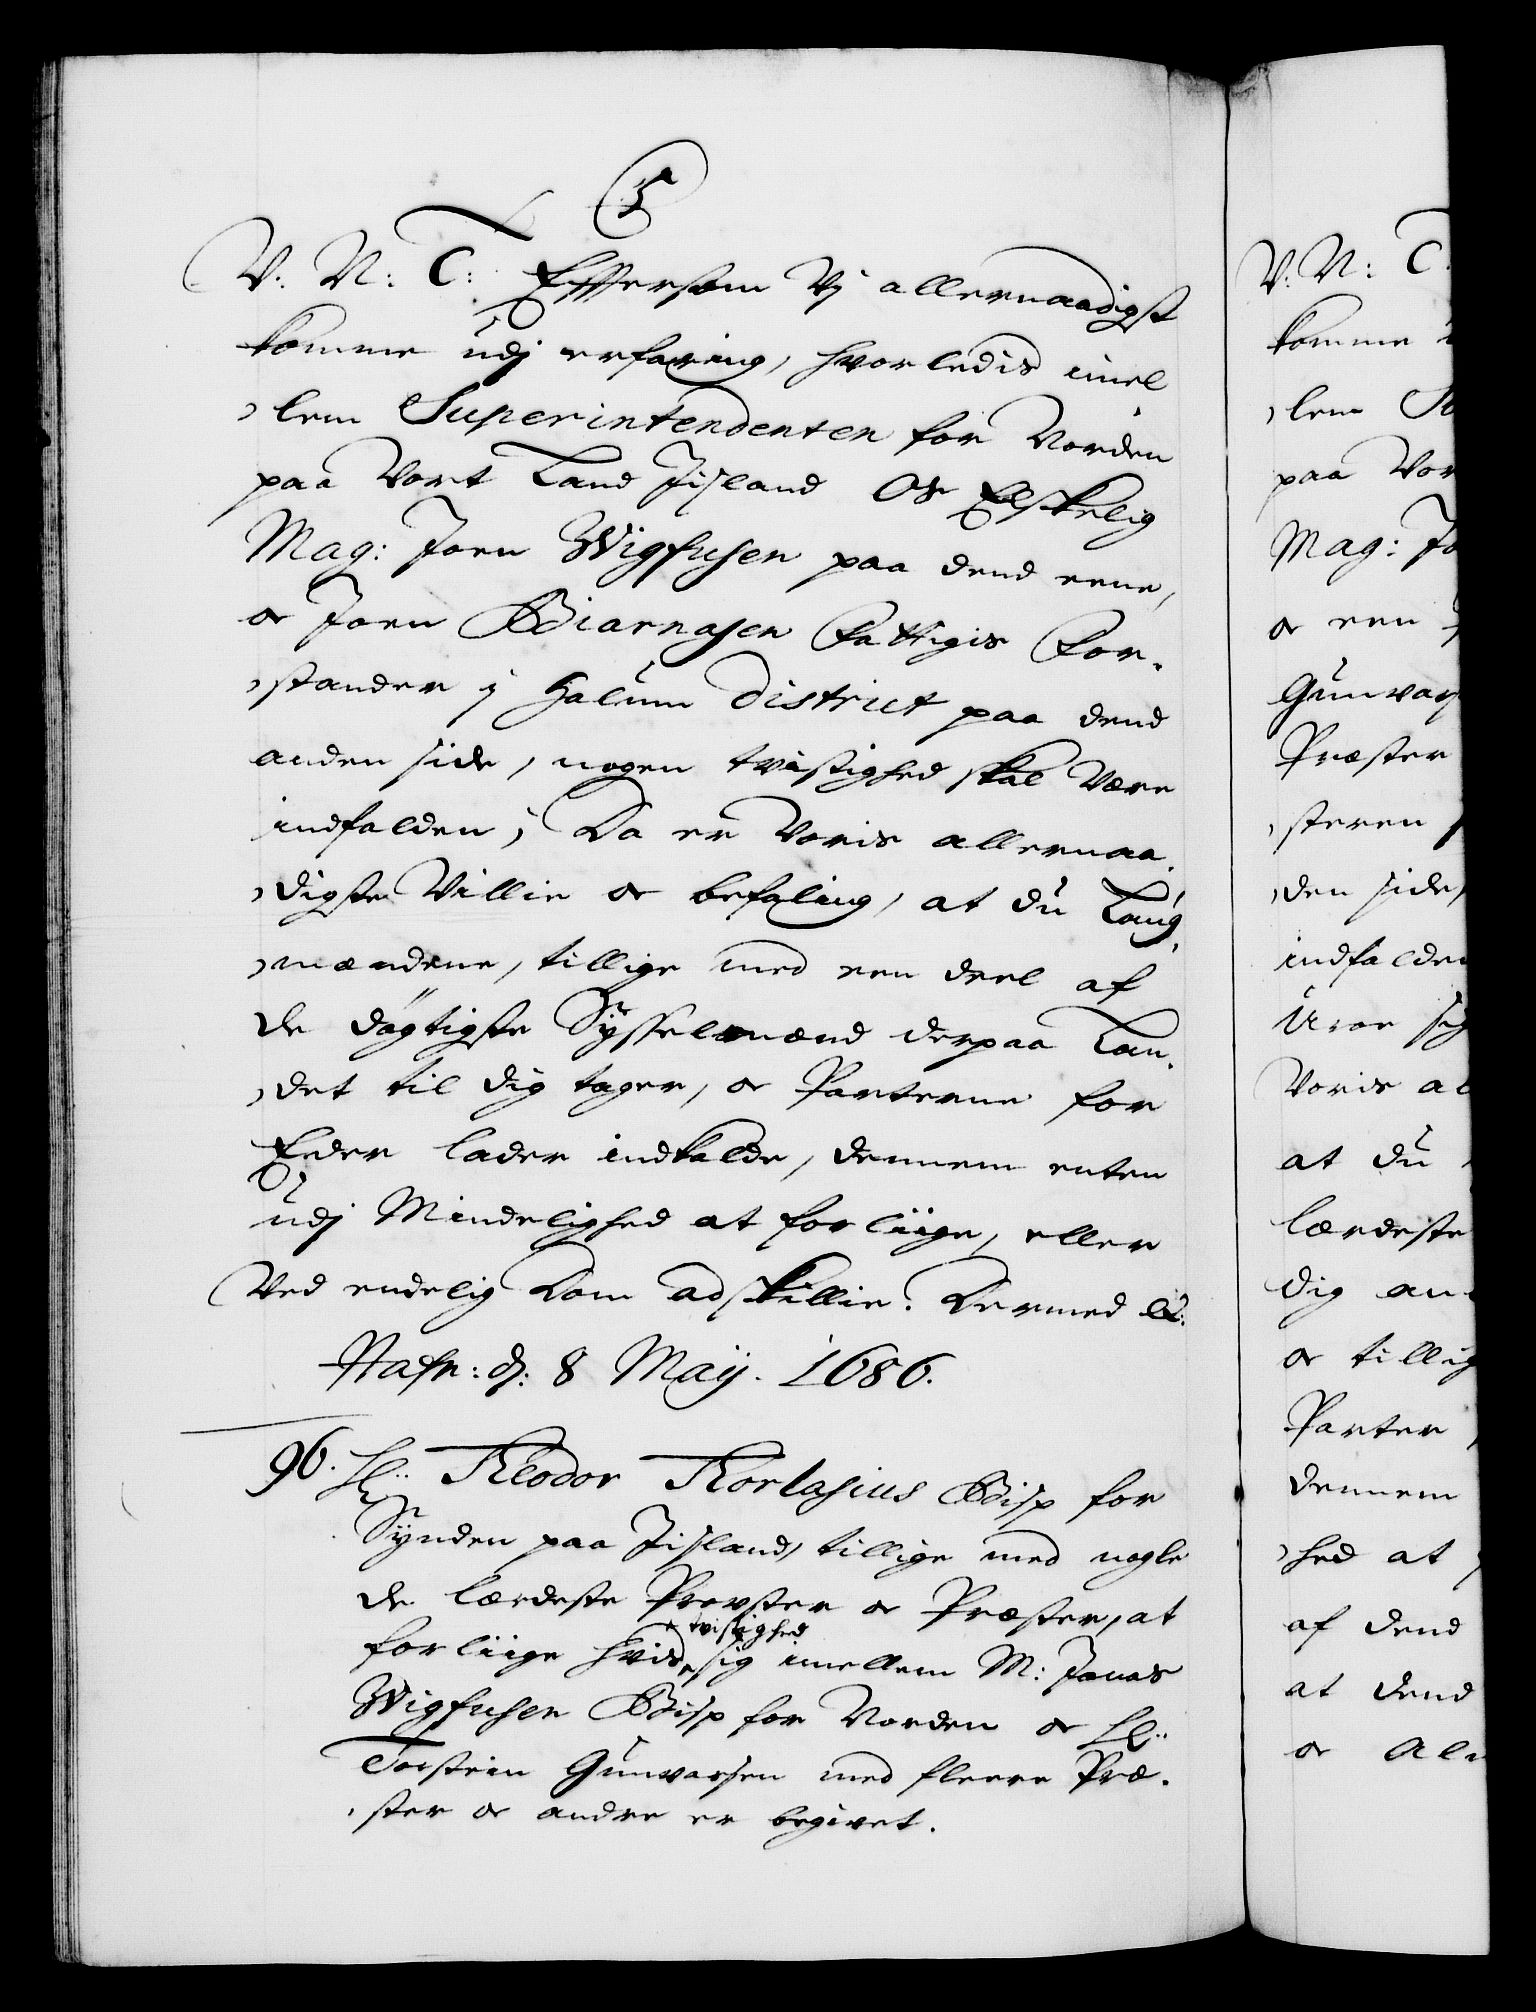 5
V. N: T: Effersom Vj allernaadigst
komme udj erfaring, hvorledis imel
lem Superintendenten for Norden
paa Vort Land Jisland Os Elskelig
Mag: Joen Wigfusen paa dend eene,
oc Joen Biarnasen Fattigis For-
stander j Halum District paa dend
anden side, nogen tvistighed skal Være
indfalden; Da er Voris allernaa-
digste Villie oc befaling, at du Laug-
mændene, tillige med een deel af
de dögtigste Sysselmænd derpaa Lan-
det til dig tager, oc Parterne for
Eder lader indkalde, dennem enten
udj Mindelighed at forliige, eller
Ved endelig Dom adskillie. Dermed &:
Hafn: d: 8 Maij. 1686.
96. Hr: Theodor Thorlasius Bisp for
Synden paa Jisland, tillige med nogle
de lærdeste Provster oc Præster, at
tvistighed
forliige hvis sig imellem M: Jonas
Wigfusen Bisp for Norden oc Hr:
Torstein Gunvarsen med fleere Præ-
ster oc andre er begivet.
V. N: T.
komme
lem
paa Vor
Mag: Jo
oc een
Gunvars
Præster
steren
den side,
indfalden
Voris al
at du
lærdeste
dig an
oc tillig
Parter
dennem
hed at
af dend
at dend
oc